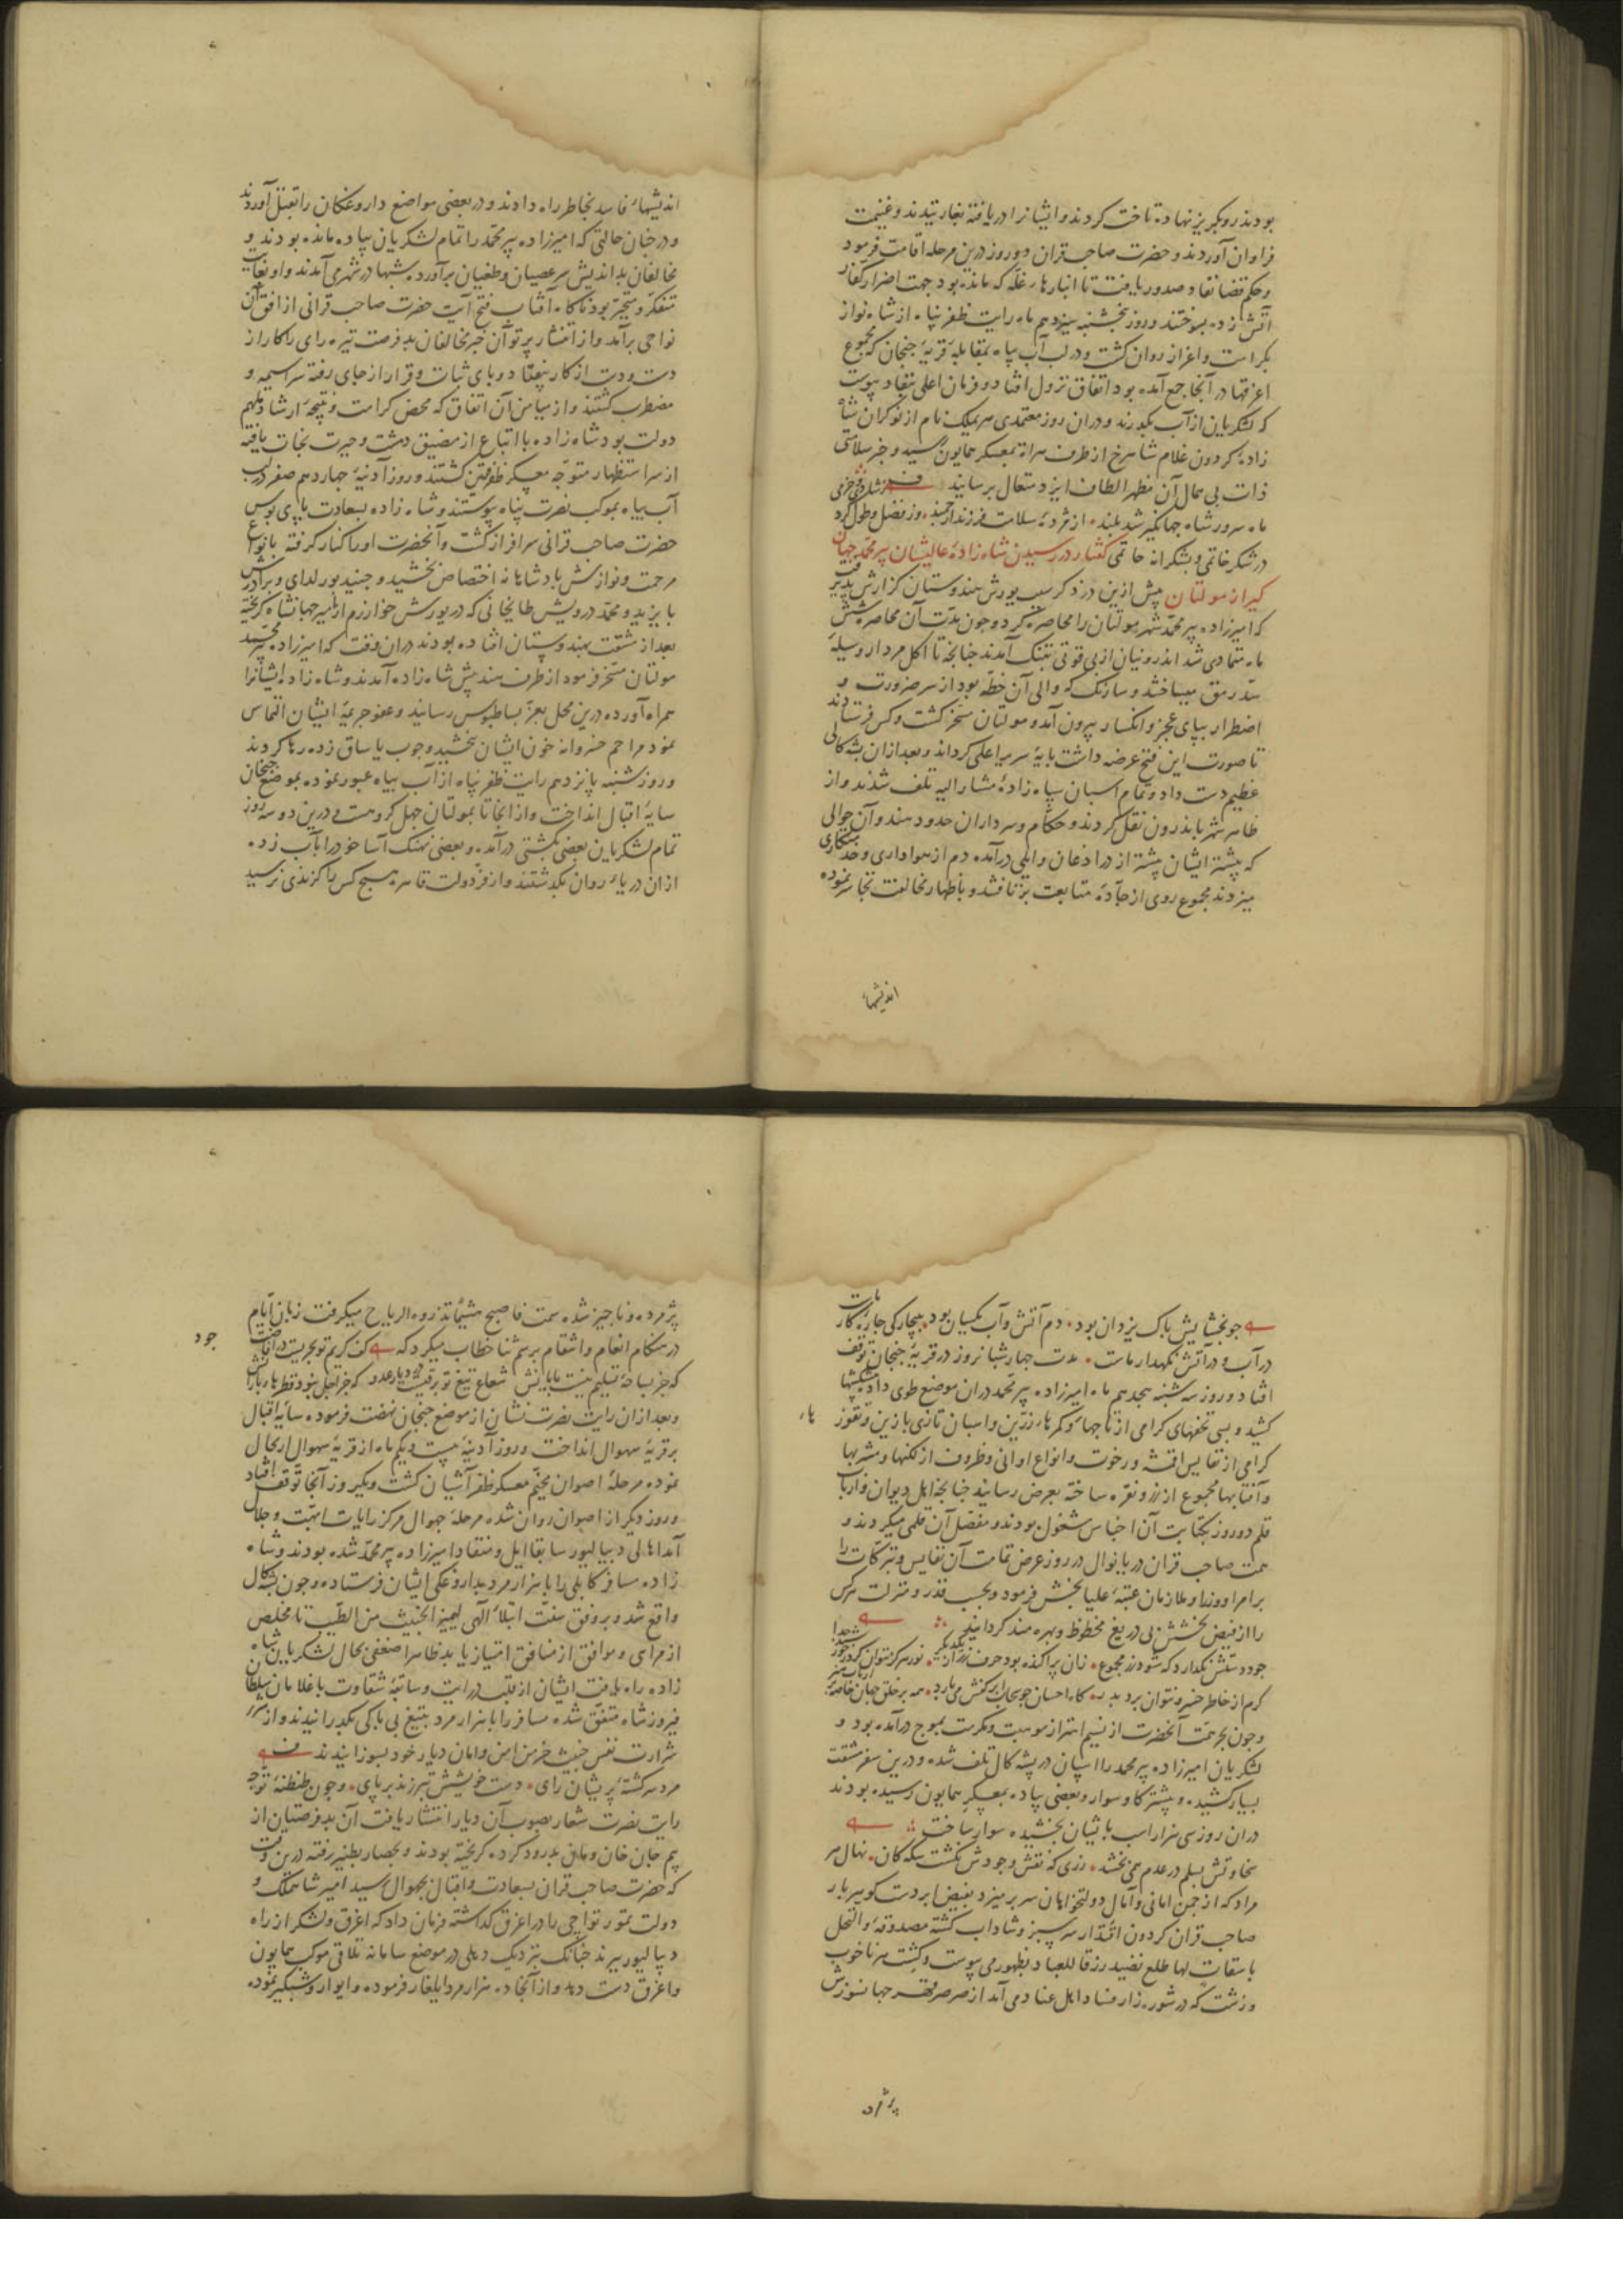 بودند روبگریز نهاده تاخت کردند و ایشانرا دریافته بغارتیدند و غنیمت
فراوان آوردند و حضرت صاحب قران دو روز درین مرحله اقامت فرمود
و حکم قضا نفاذ صدور یافت تا انبارهاء غله که مانده بود جهت اضرار کفار
آتش زده بسوختند و روز پنجشنبه سیزدهم ماه رایت ظفر پناه از شاه نواز
بکرامت و اعزاز روان گشت و در لب آب بیاه بمقابله قریه جنجان که مجموع
اغرقها در آنجا جمع آمده بود اتفاق نزول افتاد و فرمان اعلی بنفاد پیوست
که لشکریان از آب بگذرند و دران روز معتمدی هریملک نام از نوکران شاه
زاده کردون غلام شاهرخ از طرف هراة بمعسکر همایون رسید و خبر سلامتی
ذات بی همال آن مظهر الطاف ایزد متعال برسانید
ماه سرور شاه جهانگیر شد بلند از مژده سلامت فرزند ارجمند
در شکر خاتمی و بشکرانه حاتمی گفتار در رسیدن شاه زاده عالیشان پیر محمد جهان
گیر از مولتان پیش ازین در ذکر سبب یورش هندوستان گزارش پذیرفت
که امیرزاده پیر محمد شهر مولتان را محاصره کرد و چون مدت آن محاصره شش
ماه متمادی شد اندرونیان از بی قوتی بتنگ آمدند چنانچه تا اکل مردار وسیله
سد رمق میساختند و سارنگ که والی آن خطه بود از سر ضرورت و
اضطرار بپای عجز و انکسار بیرون آمد و مولتان مسخر گشت و کس فرستادند
تا صورت این فتح عرضه داشت پایه سریر اعلی گرداند و بعد ازان بشکالی
عظیم دست داد و تمام اسبان سپاه زاده مشار الیه تلف شدند و از
ظاهر شهر باندرون نقل کردند و حکام و سرداران حدود هند و آن حوالی
که پیشتر ایشان پیشتر از در اذعان و ایلی درآمده دم از هواداری و خدمتکاری
میزدند مجموع روی از جاده متابعت برتافتند و باظهار مخالفت تجاسر نموده
اندیشهاء
اندیشهاء فاسد بخاطر راه دادند و در بعضی مواضع داروغکان را بقتل آوردند
و در چنان حالتی که امیرزاده پیر محمد را تمام لشکریان پیاده مانده بودند و
مخالفان بد اندیش سر عصیان و طغیان برآورده شبها در شهر می آمدند و او بغایت
متفکر و متحیر بود ناگاه آفتاب فتح آیت حضرت صاحب قرانی از افق آن
نواحی برآمد و از انتشار پرتو آن خبر مخالفان بد فرصت تیره رای را کار از
دست و دست از کار بیفتاد و پای ثبات و قرار از جای رفته سراسیمه و
مضطرب گشتند و از میامن آن اتفاق که محض کرامت و نتیجه ارشاد ملهم
دولت بود شاه زاده با اتباع از مضیق دهشت و حیرت نجات یافته
از سر استظهار متوجه معسکر ظفر قرین گشتند و روز آدینه چهاردهم صفر در لب
آب بیاه بموکب نصرت پناه پیوستند و شاه زاده بسعادت پای بوس
حضرت صاحب قرانی سرافراز گشت و آنحضرت او را کنار گرفته بانواع
مرحمت و نوازش پادشاهانه اختصاص بخشید و جنید بورلدای و برادرش
بایزید و محمد درویش طایخانی که در یورش خوارزم از امیر جهانشاه گریخته
بعد از مشقت بهندوستان افتاده بودند دران وقت که امیرزاده پیر محمد
مولتان مسخر فرمود از طرف هند پیش شاه زاده آمدند و شاه زاده ایشانرا
همراه آورده درین محل بعز بساط بوس رسانید و عفو جریمه ایشان التماس
نمود مراحم خسروانه خون ایشان ببخشید و چوب یاساق زده رها کردند
و روز شنبه پانزدهم رایت ظفر پناه از آب بیاه عبور نموده بموضع جنجان
سایه اقبال انداخت و از انجا تا بمولتان چهل کروهست و درین دو سه روز
تمام لشکریان بعضی بکشتی درآمده و بعضی نهنگ آسا خود را بآب زده
ازان دریاء روان بگذشتند و از فر دولت قاهره هیچ کس را گزندی نرسید
چو بخشایش پاک یزدان بود دم آتش و آب یکسان بود
در آب و در آتش نگهدار ماست مدت چهار شبانروز در قریه جنجان توقف
افتاد و روز سه شنبه هجدهم ماه امیرزاده پیر محمد دران موضع طوی داد پیشکشها
کشید و بسی تحفهای گرامی از تاجهاء و کمرهاء زرین و اسبان تازی با زین و تقوز
گرامی از نفایس اقمشه و رخوت و انواع اوانی و ظروف از لکنها و مشربها
و آفتابها مجموع از زر و نقره ساخته بعرض رسانید چنانچه اهل دیوان و ارباب
قلم دو روز بکتابت آن اجناس مشغول بودند و مفصل آن قلمی میکردند و
همت صاحب قران دریا نوال در روز عرض تمامت آن نفایس و تبرکات را
بر امرا و وزرا و ملازمان عتبه علیا بخش فرمود و بحسب قدر و منزلت هرکس
را از فیض بخشش بی دریغ محظوظ و بهره مند گردانید
جود دستش نگذارد که شود زر مجموع
کرم از خاطر خسرو نتوان برد بدر
و چون بحر همت آنحضرت از نسیم اهتزاز موهبت و مکرمت بموج درآمده بود و
لشکریان امیرزاده پیر محمد را اسپان در پشه کال تلف شده و درین سفر مشقت
بسیار کشیده و بیشتر گاو سوار و بعضی پیاده بمعسکر همایون رسیده بودند
دران روز سی هزار اسب بایشان بخشیده سوار ساخت
سخاوتش بسلم در عدم همی بخشد زری که نقش وجودش نگشت سکه کان نهال هر
مراد که از چمن امانی و آمال دولتخواهان سر برمیزد بفیض ابر دست گوهر بار
صاحب قران گردون اقتدار سرسبز و شاداب گشته مصدوقه و النخل
باسقات لها طلع نضید رزقا للعباد بظهور می پیوست و کشت هر ناخوب
و زشت که در شوره زار فساد اهل عناد می آمد از صرصر قهر جهانسوزش
پژمرده
پژمرده و ناچیز شده سمت فاصبح هشیما تذروه الریاح میگرفت زبان ایام
در هنگام انعام و انتقام برسم ثنا خطاب میکرد که کف کریم تو بحریست
جود
که جز بساحه تسلیم نیست پایانش شعاع تیغ تو برقیست در دیار عدو که جز اجل نبود قطرهاء بارانش
و بعد ازان رایت نصرت نشان از موضع جنجان نهضت فرموده سایه اقبال
بر قریه سهوال انداخت و روز آدینه بیست و یکم ماه از قریه سهوال ارتحال
نموده مرحله اصوان مخیم معسکر ظفر آشیان گشت و یکروز آنجا توقف افتاد
و روز دیگر از اصوان روان شده مرحله جهوال مرکز رایات ابهت و جلال
آمد اهالی دیبالپور سابقا ایل و منقاد امیرزاده پیر محمد شده بودند و شاه
زاده مسافر کابلی را با هزار مرد بداروغگی ایشان فرستاده و چون بشکال
واقع شد و بر وفق سنت ابتلاء الهی لیمیز الخبیث من الطیب تا مخلص
از مرای و موافق از منافق امتیاز یابد ظاهرا ضعفی بحال لشکریان شاه
زاده راه یافت ایشان از قلت درایت و سابقه شقاوت با غلامان سلطان
فیروز شاه متفق شده مسافر را با هزار مرد بتیغ بی باکی بگذرانیدند و از
شرارت نفس خبیث خرمن امن و امان دیار خود بسوزانیدند
مرد سرگشته پریشان رای دست خویشش تبر زند بر پای و چون طنطنه توجه
رایت نصرت شعار بصوب آن دیار انتشار یافت آن بد فرصتیان از
بیم جان خان و مان بدرود کرده گریخته بودند و بحصار بطنیر رفته درین وقت
که حضرت صاحب قران بسعادت و اقبال بجهوال رسید امیر شاهملک و
دولت تمور تواچی را در اغرق گذاشته فرمان داد که اغرق و لشکر از راه
دیبالپور ببرند چنانک نزدیک دهلی در موضع سامانه تلاقی موکب همایون
و اغرق دست دهد و از آنجا ده هزار مرد ایلغار فرموده و ایوار و شبگیر نموده